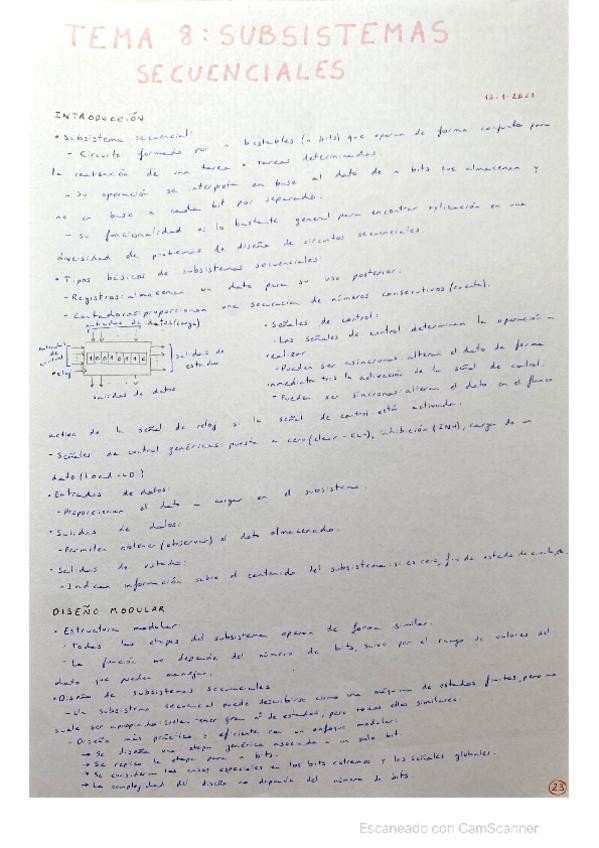 TEMA 8: SUBSISTEMAS
SECUENCIALES
INTRODUCCIÓN
• Subsistema secuencial:
- Circuito formado por n biestables (n bits) que operan de forma conjunta para
la realización de una tarea o tareas determinadas.
- Su operación se interpreta en base al dato de n bits que almacenan y
no en base a cada bit por separado.
- Su funcionalidad es lo bastante general para encontrar aplicación en una
diversidad de problemas de diseño de circuitos secuenciales.
• Tipos básicos de subsistemas secuenciales:
- Registros: almacenan un dato para su uso posterior.
- Contadores: proporcionan una secuencia de números consecutivos (cuenta).
entradas de datos (carga)
entradas
de
control
reloj
10010110
salidas de
estado
salidas de datos
• Señales de control:
- Las señales de control determinan la operación a
realizar.
- Pueden ser asíncronas: alteran el dato de forma
inmediata tras la activación de la señal de control.
- Pueden ser síncronas: alteran el dato en el flanco
activo de la señal de reloj si la señal de control está activada.
- Señales de control genéricas: puesta a cero (clear - CL), inhibición (INH), carga de un
dato (Load - LD)
• Entradas de datos:
- Proporcionan el dato a cargar en el subsistema.
• Salidas de datos:
- Permiten obtener (observar) el dato almacenado.
• Salidas de estado:
- Indican información sobre el contenido del subsistema: si es cero, fin de estado de cuenta,
DISEÑO MODULAR
• Estructura modular:
- Todas las etapas del subsistema operan de forma similar.
- La función no depende del número de bits, salvo por el rango de valores del
dato que pueden manejar.
• Diseño de subsistemas secuenciales
- Un subsistema secuencial puede describirse como una máquina de estados finitos, pero no
suele ser apropiado: suelen tener gran nº de estados, pero todos ellos similares.
- Diseño más práctico y eficiente con un enfoque modular:
→ Se diseña una etapa genérica asociada a un solo bit.
→ Se replica la etapa para n bits.
→ Se consideran los casos especiales en los bits extremos y las señales globales.
→ La complejidad del diseño no depende del número de bits
23
Escaneado con CamScanner